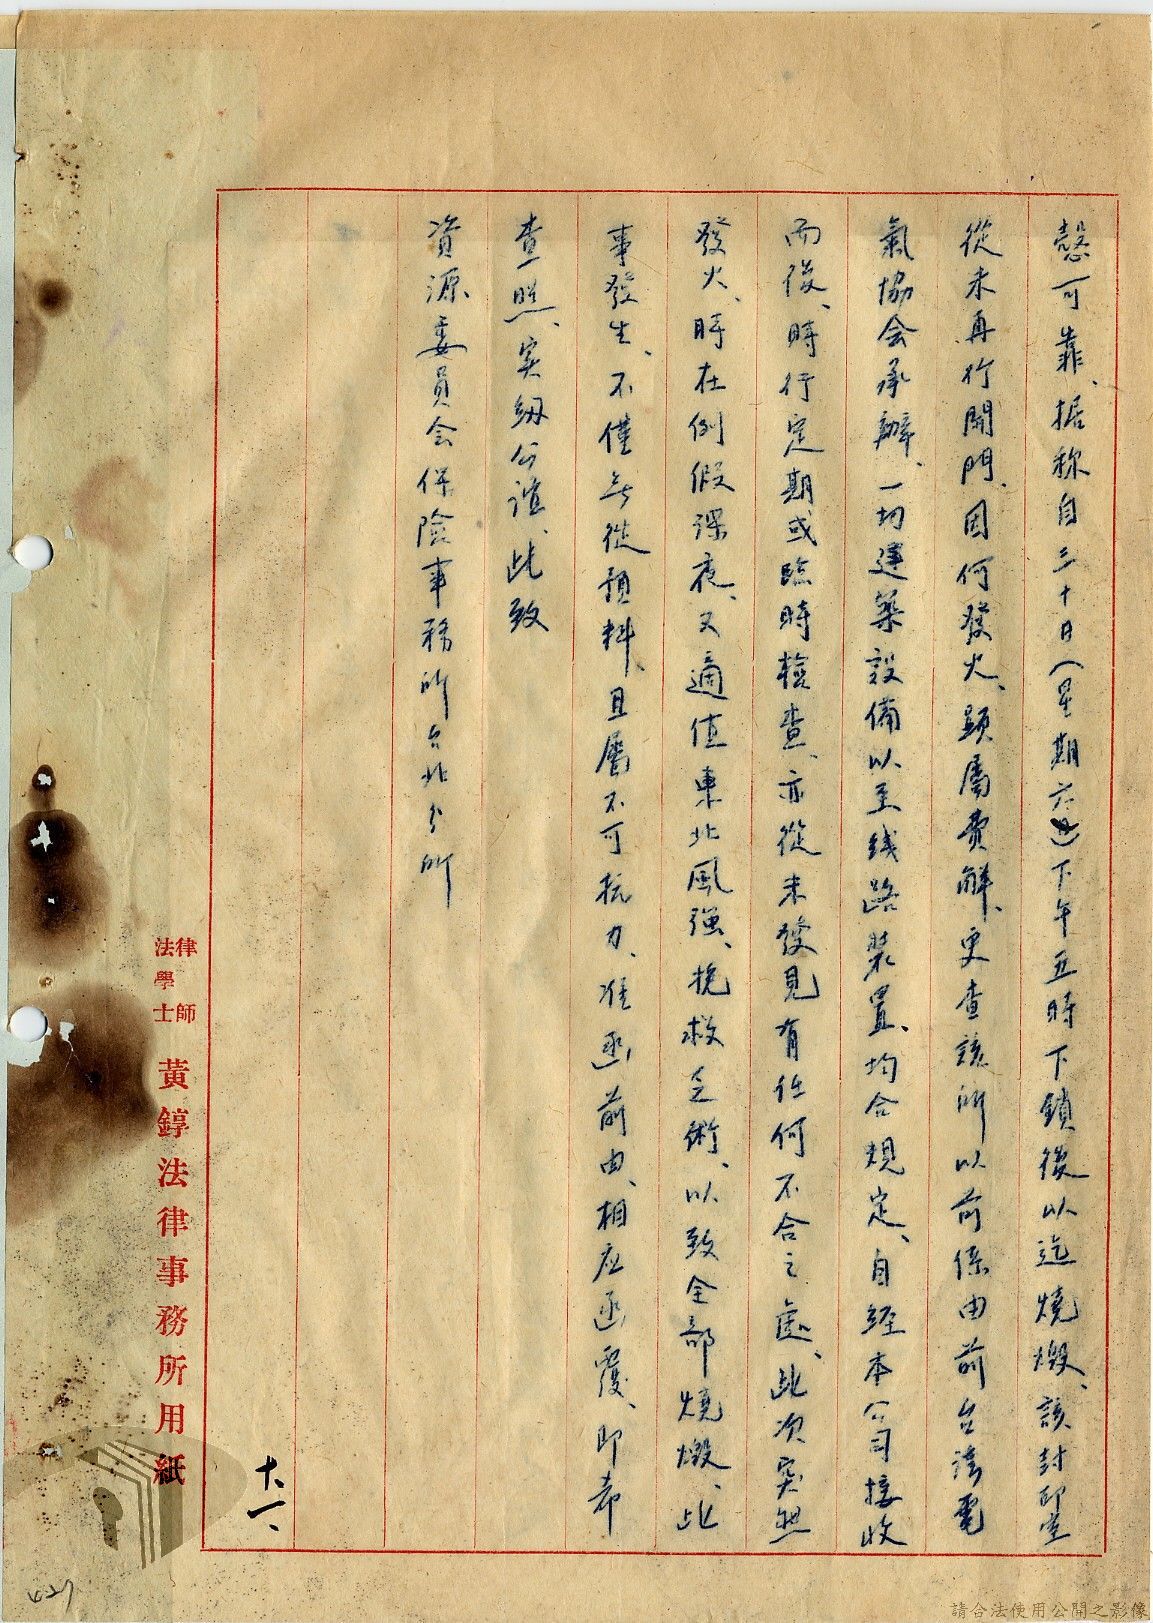 愨可靠、据称自三十日(星期六)下午五時下鎖後以迄燒燬、該封印堂
從未再行開門、因何發火、顕屬費解、更查該所以前係由前台湾電
氣協会承辦、一切建築設備以至线路装置、均合規定、自經本公司接收
而後、時行定期或臨時檢查、亦從未發見有任何不合之處、此次突然
發火、時在例假深夜、又適值東北風强、挽救乏術、以致全部燒燬、此
事發生、不僅無從預料、且屬不可抗力、准函前由、相应函覆、即希
查照、实紉公誼、此致
資源委員会保險事務所台北分所
十一、
律師
法學士
黃錞法律事務所用紙
427
請合法使用公開之影像